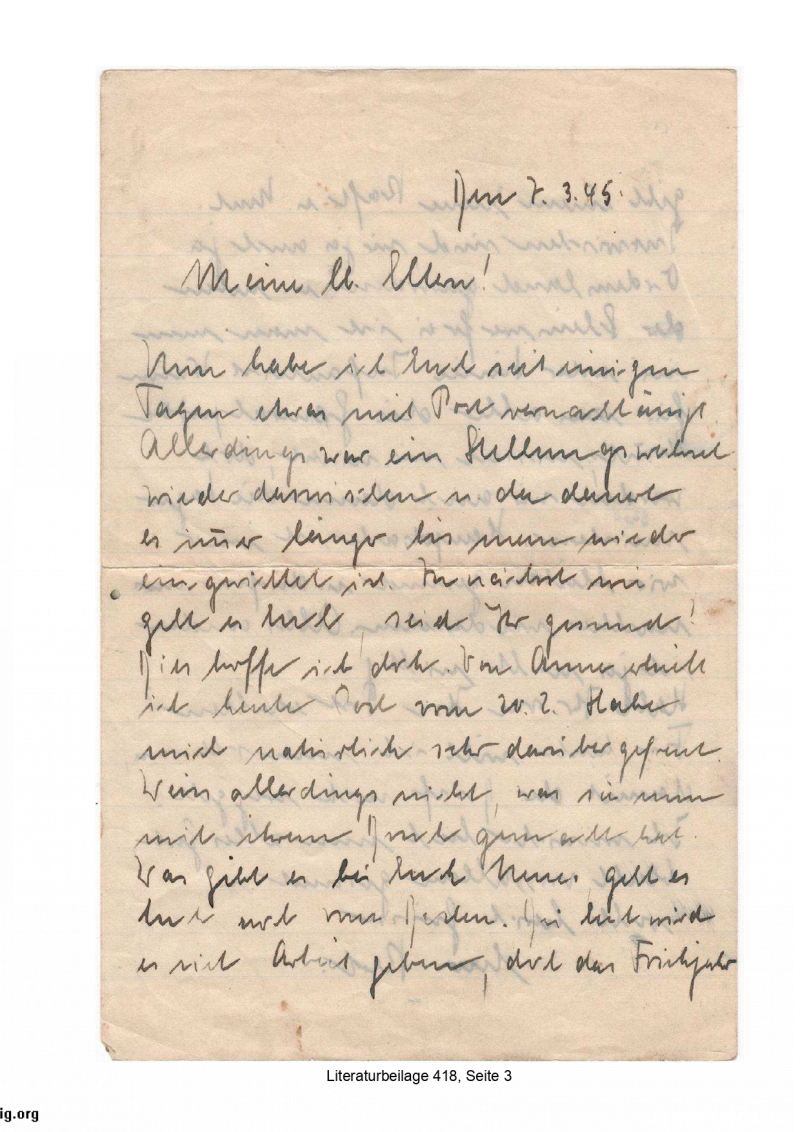 Den 7. 3. 45.
Meine lb. Eltern!
Nun habe ich Euch seit einigen
Tagen etwas mit Post vernachlässigt
Allerdings war ein Stellungswechsel
wieder dazwischen u. da dauert
es im̅er länger bis man wieder
eingerichtet ist. Zunächst wie
geht es Euch, seid Ihr gesund!
Dies hoffe ich doch. Von Anne erhielt
ich heute Post vom 20. 2. Habe
mich natürlich sehr darüber gefreut.
Weis allerdings nicht, was sie nun
mit ihrem gemacht hat.
Was gibt es bei Euch Neues, geht es
Euch noch vom Besten. Bei Euch wird
es viel Arbeit geben, doch das Frühjahr
Literaturbeilage 418, Seite 3
ig.org